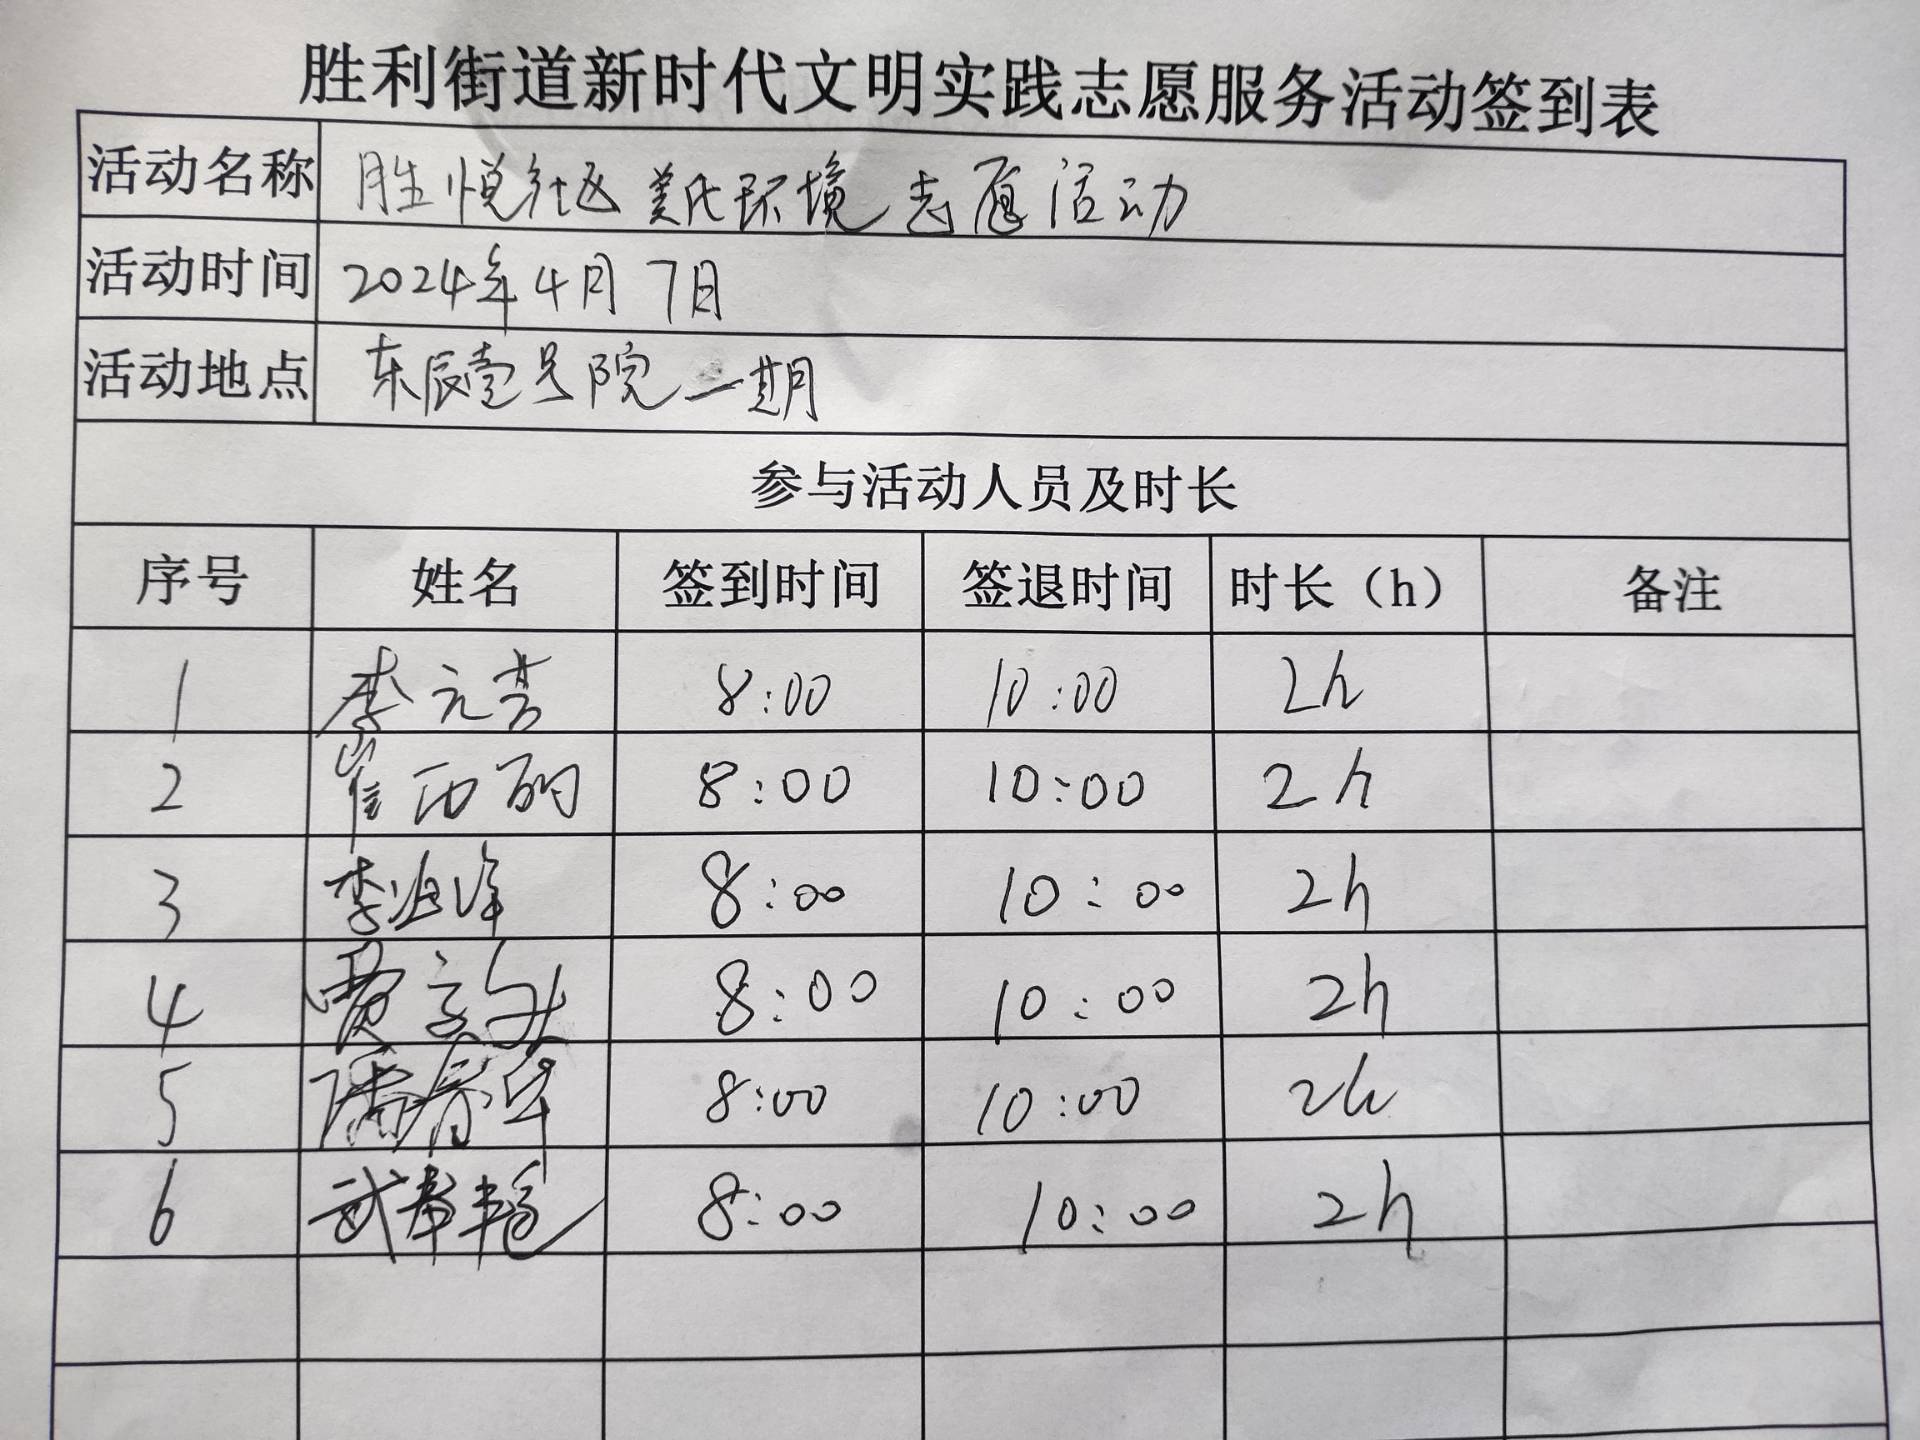 胜利街道新时代文明实践志愿服务活动签到表
活动名称 胜悦社区美化环境志愿活动
活动时间 2024年4月7日
活动地点 东辰壹号院一期
参与活动人员及时长
序号 姓名 签到时间 签退时间 时长（h） 备注
1 李元芳 8:00 10:00 2h
2 崔 8:00 10:00 2h
3 李 8:00 10:00 2h
4 贾 8:00 10:00 2h
5 潘春华 8:00 10:00 2h
6 武 8:00 10:00 2h